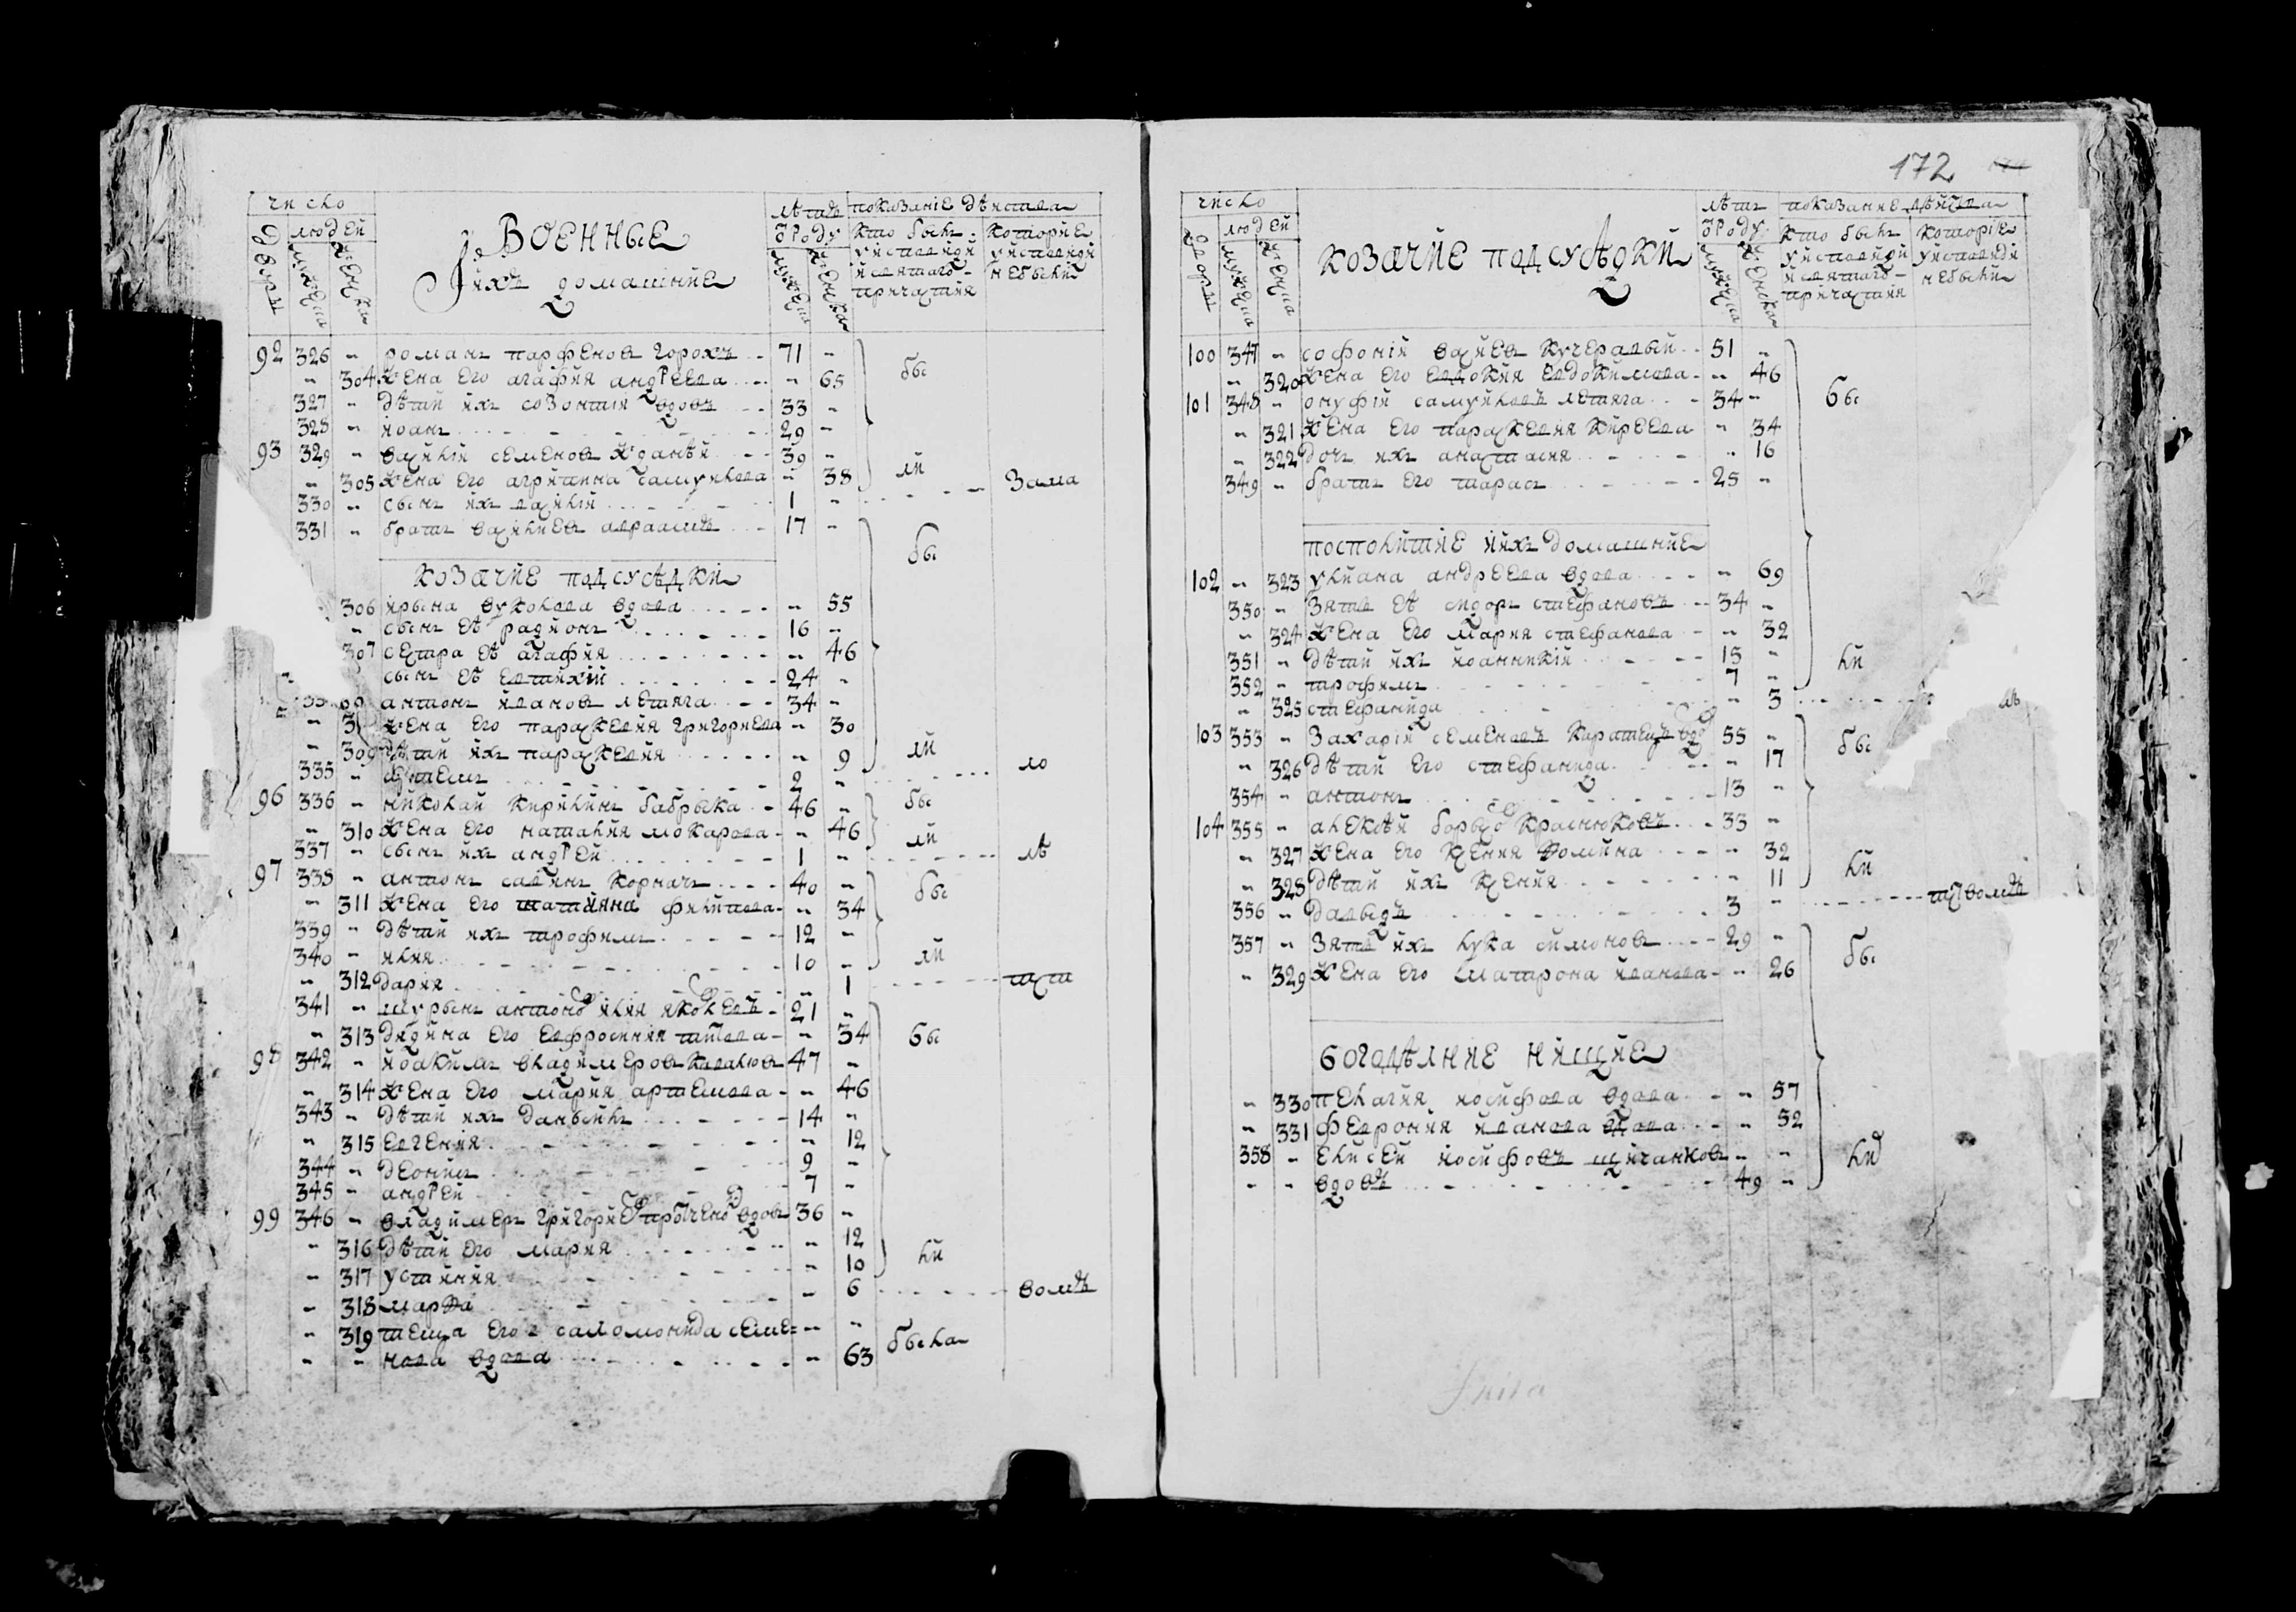 число
людей
двори
мужеска
женска
Военные
и ихъ домашние
лѣтъ
ѿ роду
мужеска
женска
показание дѣиства
кто былъ
у исповѣди
и святаго
причастия
которие
у исповѣди
не были
92 326 " романъ парфеновъ горохъ 71 "
" 304 жена его агафия андреева " 65
327 " дѣти ихъ созонтий вдовъ 33 "
328 " иоанъ 29 "
бы
93 329 " василий семеновъ жданѣй 39 "
" 305 жена его агрипина самуилова " 38
ли
330 " сынъ ихъ василий 1 " зама
331 " братъ василиевъ авраамъ 17 "
бы
козачие подсусѣдки
306 ирына вуколова вдова " 55
" сынъ еѣ радионъ 16 "
307 сестра еѣ агафия " 46
сынъ еѣ евтихий 24 "
антонъ ивановъ летяга 34 "
жена его параскевия григориева " 30
" 309 дѣти ихъ параскевия " 9
ли
335 " артемъ 2 " ло
96 336 " николай кирилинъ бабрыка 46 "
бы
" 310 жена его наталия мокарова " 46
ли
337 " сынъ ихъ андрей 1 " лѣ
97 338 " антонъ савинъ корначъ 40 "
бы
" 311 жена его татияна филипова " 34
339 " дѣти ихъ трофимъ 12 "
340 " илия 10 "
ли
" 312 дария " 1
341 " шурынъ антоно илия яковлевъ 21 "
" 313 дядина его евфросиния титова " 34
бы
98 342 " иоакимъ владимеровъ 47 "
" 314 жена его мария артемова " 46
343 " дѣти ихъ даныилъ 14 "
" 315 евгения " 12
344 " деонис 9 "
345 " андрей 7 "
99 346 " владимеръ григорие вдовъ 36 "
" 316 дѣти его мария " 12
" 317 устиния " 10
ли
" 318 марфа " 6 вомъ
" 319 теща его саломонида семе= " "
" " нова вдова " 63 была
172
число
людей
двори
мужеска
женска
козачие подсусѣдки
лѣтъ
ѿ роду
мужеска
женска
показание дѣйства
кто былъ
у исповѣди
и святаго
причастия
которие
у исповѣди
не были
100 347 " софоний василиевъ кучеравый 51 "
" 320 жена его евдокия евдокимова " 46
бы
101 348 " онуфрий самуиловъ летяга 34 "
" 321 жена его параскевия кирѣева " 34
" 322 дочь ихъ анастасия " 16
349 " братъ его тарасъ 25 "
посполитие и ихъ домашние
102 " 323 улияна андреева вдова " 69
350 " зять еѣ сидоръ стефановъ 34 "
" 324 жена его мария стефанова " 32
351 " дѣти ихъ иоанникий 15 "
ли
352 " трофимъ 7 "
" 325 стефанида " 3
103 353 " захарий семеновъ 55 "
бы
" 326 дѣти его стефанида " 17
354 " антонъ 13 "
104 355 " алексѣй борысо краснюковъ 33 "
" 327 жена его ксения фомина " 32
" 328 дѣти ихъ ксения " 11
ли
356 " давыдъ 3 "
357 " зять ихъ лука симоновъ 29 "
" 329 жена его матрона иванова " 26
бы
богодѣлние нищие
" 330 пелагия иосифова вдова " 57
" 331 феврония иванова вдова " 52
358 " елисей иосифовъ " "
ли
" " вдовъ 49 "